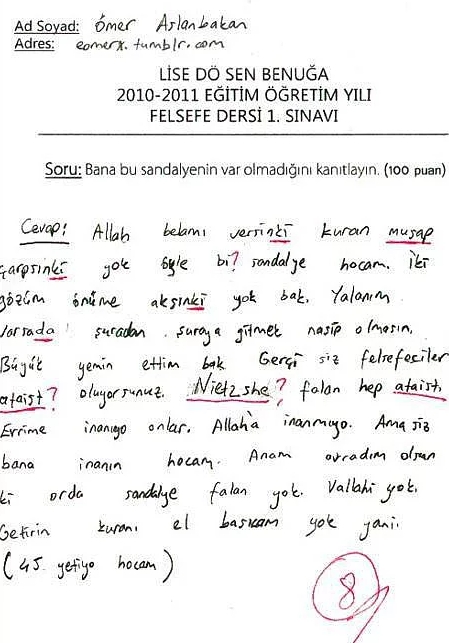 Ad Soyad: Ömer Aslanbakan
Adres: eomerx.tumblr.com
LİSE DÖ SEN BENUĞA
2010-2011 EĞİTİM ÖĞRETİM YILI
FELSEFE DERSİ 1. SINAVI
Soru: Bana bu sandalyenin var olmadığını kanıtlayın. (100 puan)
Cevap: Allah belamı versinki kuran muşap
çarpsınki yok öyle bi? sandalye hocam. İki
gözüm önüme aksınki yok bak. Yalanım
varsada şuradan şuraya gitmek nasip olmasın.
Büyük yemin ettim bak Gerçi siz felsefeciler
ataist? oluyorsunuz. Nietzshe? falan hep ataist.
Evrime inanıyo onlar. Allah'a inanmıyo. Ama siz
bana inanın hocam. Anam avradım olsun
ki orda sandalye falan yok. Vallahi yok.
Getirin kuranı el basıcam yok yani.
(45 yetiyo hocam)
8